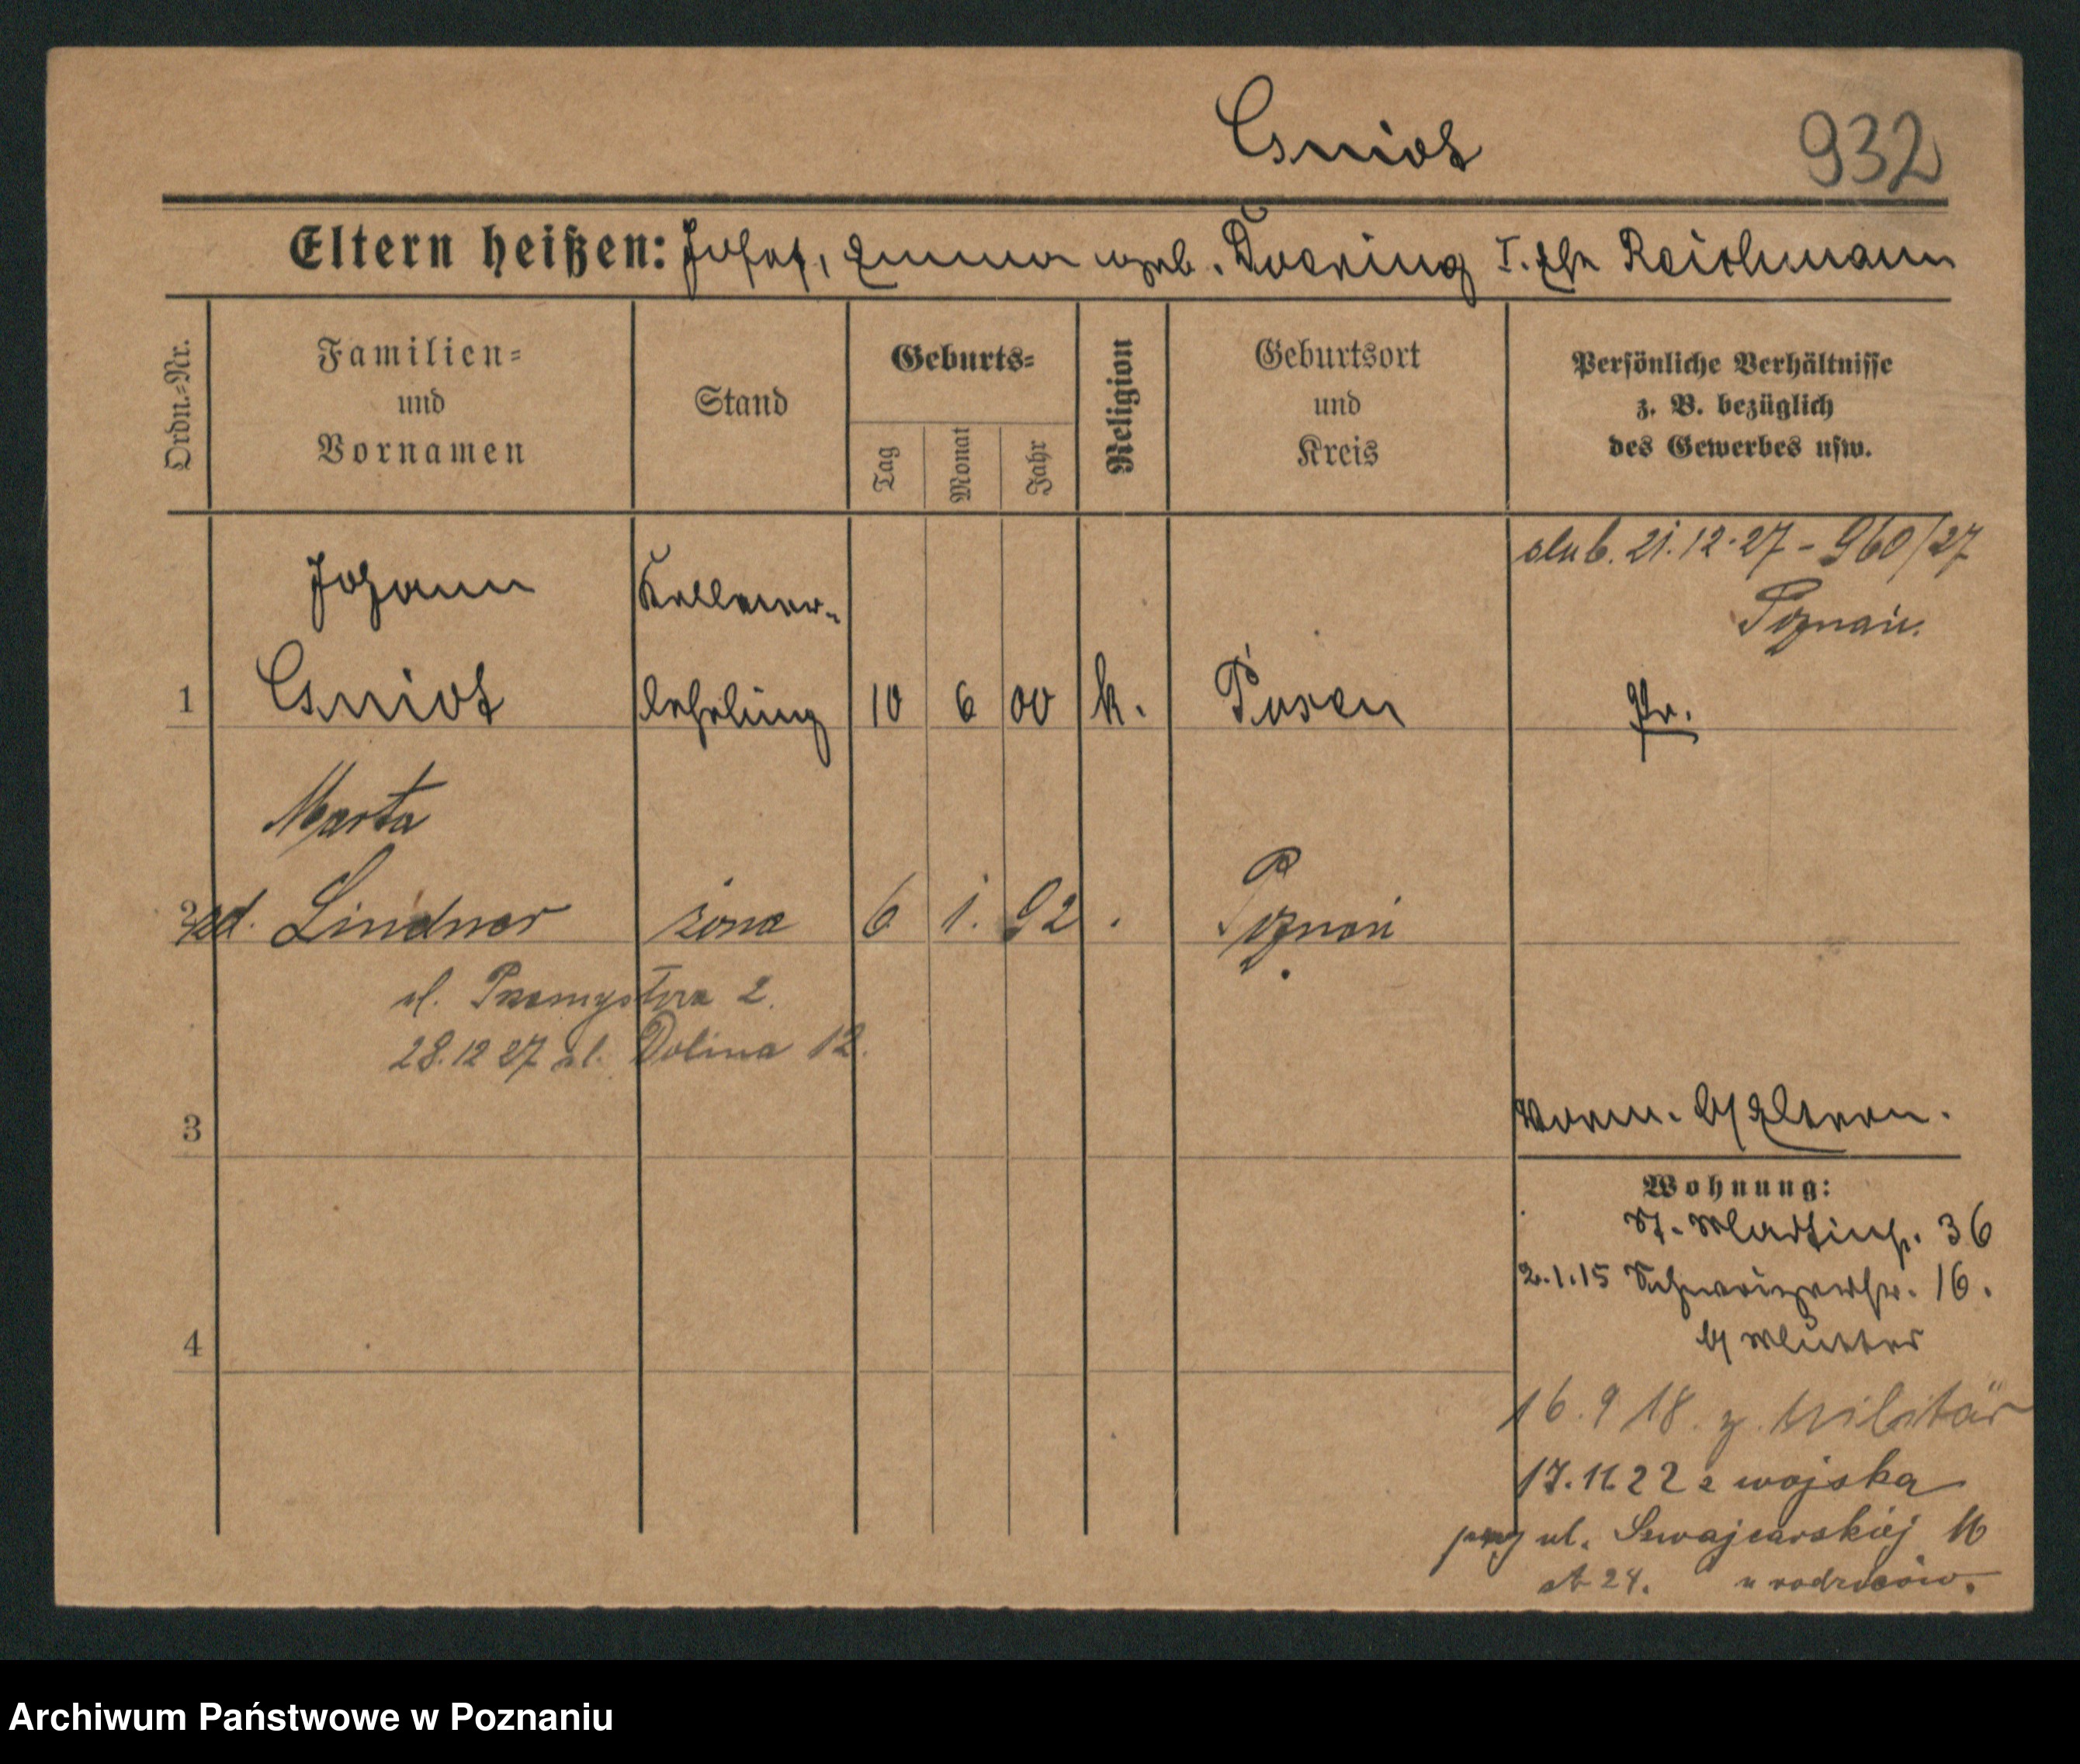 Gniot
932
Eltern heißen: Josef, Emma geb. Doering I. Ehe Reichmann
Ordn.-Nr.
Familien-
und
Vornamen
Stand
Geburts-
Tag
Monat
Jahr
Religion
Geburtsort
und
Kreis
Persönliche Verhältnisse
z. B. bezüglich
des Gewerbes usw.
ślub. 21.12.27 - 960/27
Poznań.
Johann Kellner-
1 Gniot lehrling 10 6 00 k. Posen Pr.
Marta
2 zd. Lindner żona 6 1. 92 Poznań
ul. Przemysłowa 2.
28.12 27 ul. Dolina 12.
3
Vorm. b/ Eltern.
Wohnung:
St. Martinstr. 36
2.1.15 Schweizerstr. 16.
b/ Mutter
4
16.9 18. z. Militär
17.11.22 z wojska
przy ul. Szwajcarskiej 16
24. u rodziców.
Archiwum Państwowe w Poznaniu